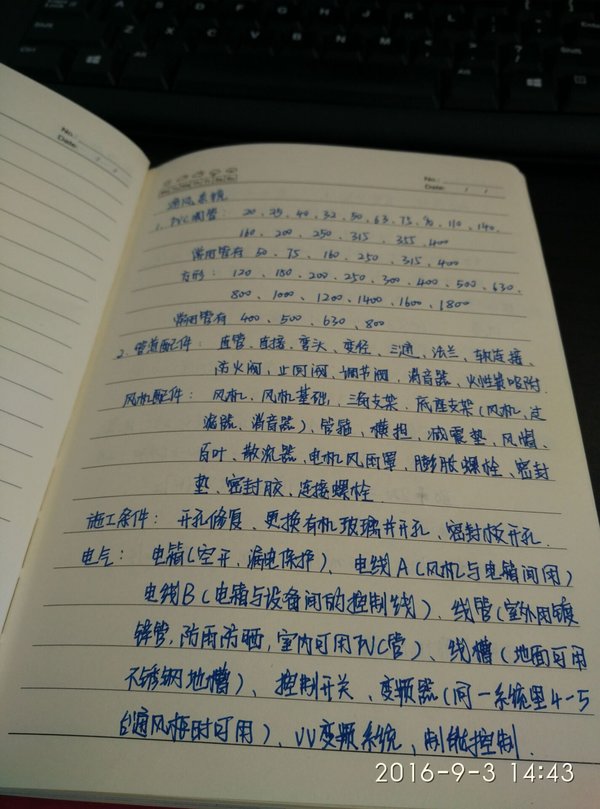 No.:
Date:
No.:
Date:
通风系统
1. PVC圆管: 20、25、40、32、50、63、75、90、110、140、
160、200、250、315、355、400
常用管有 50、75、160、250、315、400
方形: 120、150、200、250、300、400、500、630、
800、1000、1200、1400、1600、1800
常用管有 400、500、630、800
2. 管道配件: 直管、直接、弯头、变径、三通、法兰、软连接、
防火阀、止回阀、调节阀、消音器、
风机配件: 风机、风机基础、三角支架、底座支架(风机、过
滤器、消音器)、管箍、横担、减震垫、风帽、
百叶、散流器、电机风雨罩、膨胀螺栓、密封
垫、密封胶、连接螺栓
施工条件: 开孔修复、更换有机玻璃并开孔、密封板开孔.
电气: 电箱(空开、漏电保护)、电线A(风机与电箱间用)
电线B(电箱与设备间的控制线)、线管(室外用镀
锌管,防雨防晒,室内可用PVC管)、线槽(地面可用
不锈钢地槽)、控制开关、变频器(同一系统里4-5
台通风柜时可用)、VV变频系统,制控制.
2016-9-3 14:43